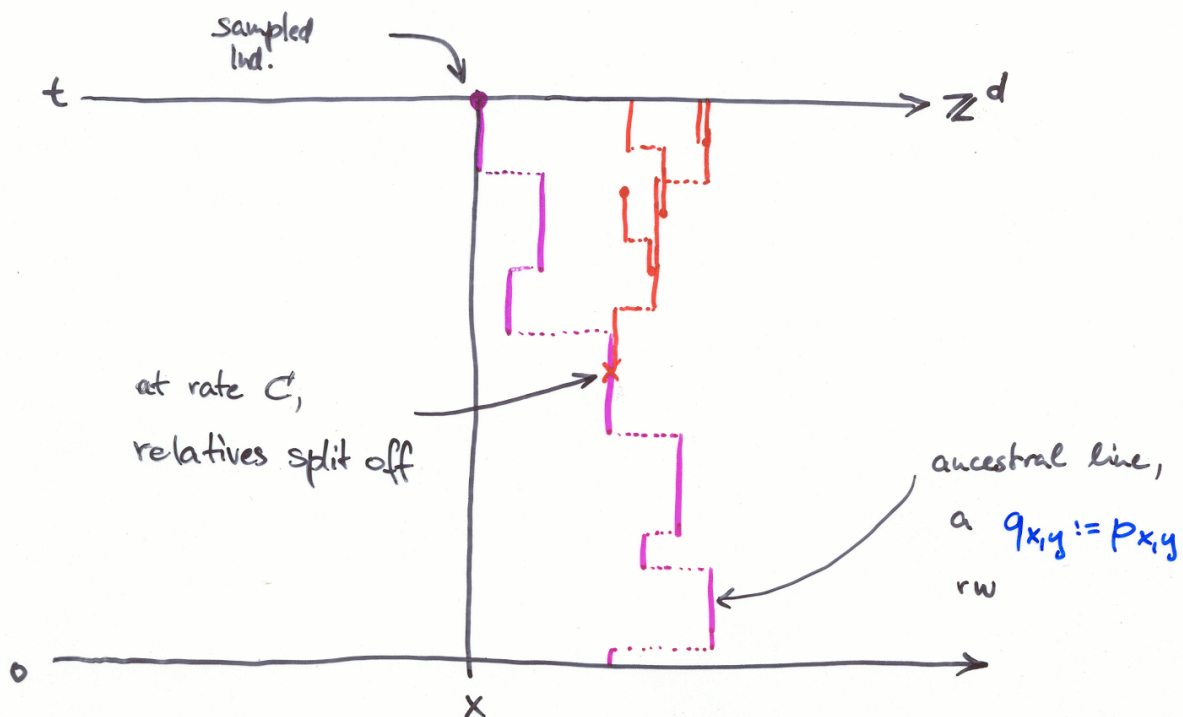 sampled
Ind.
t
ℤ^d
at rate C,
relatives split off
ancestral line,
a q_{x,y} := p_{x,y}
rw
0
x